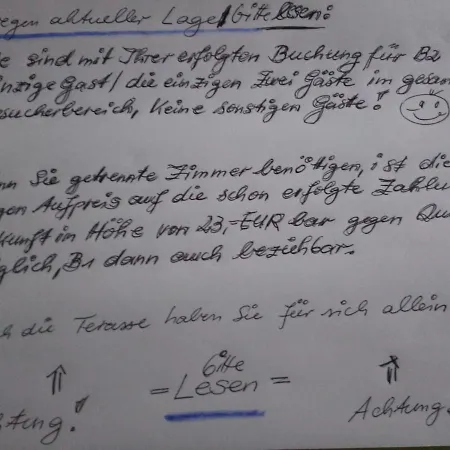 egen aktueller Lage bitte lesen!
e sind mit Ihrer erfolgten Buchung für B2
nzige Gast / die einzigen zwei Gäste im gesam
sucherbereich, keine sonstigen Gäste!
nn Sie getrennte Zimmer benötigen, ist die
gen Aufpreis auf die schon erfolgte Zahlu
kunft in Höhe von 23,-EUR bar gegen Qu
glich, B1 dann auch beziehbar.
ch die Terasse haben Sie für sich allein
Bitte
= Lesen =
htung! Achtung